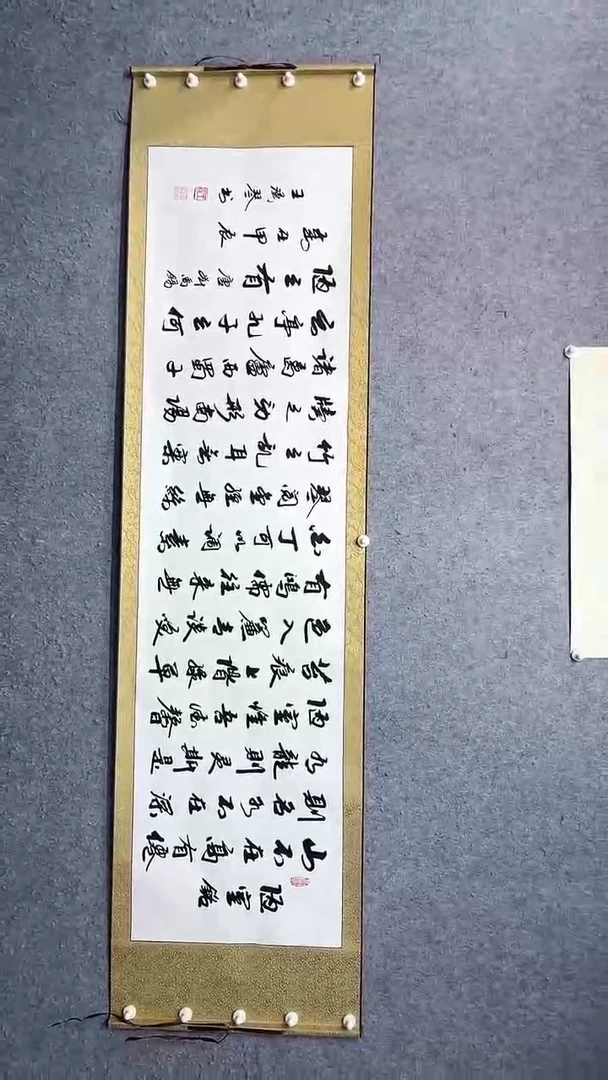 陋室銘
山不在高有僊
则名水不在深
有龍则灵斯是
陋室惟吾德馨
苔痕上階綠草
色入簾青谈笑
有鴻儒往来無
白丁可以调素
琴阅金经無絲
竹之乱耳無案
牘之劳形南陽
诸葛廬西蜀子
云亭孔子云何
陋之有 唐刘禹锡
岁在甲辰
王琴书